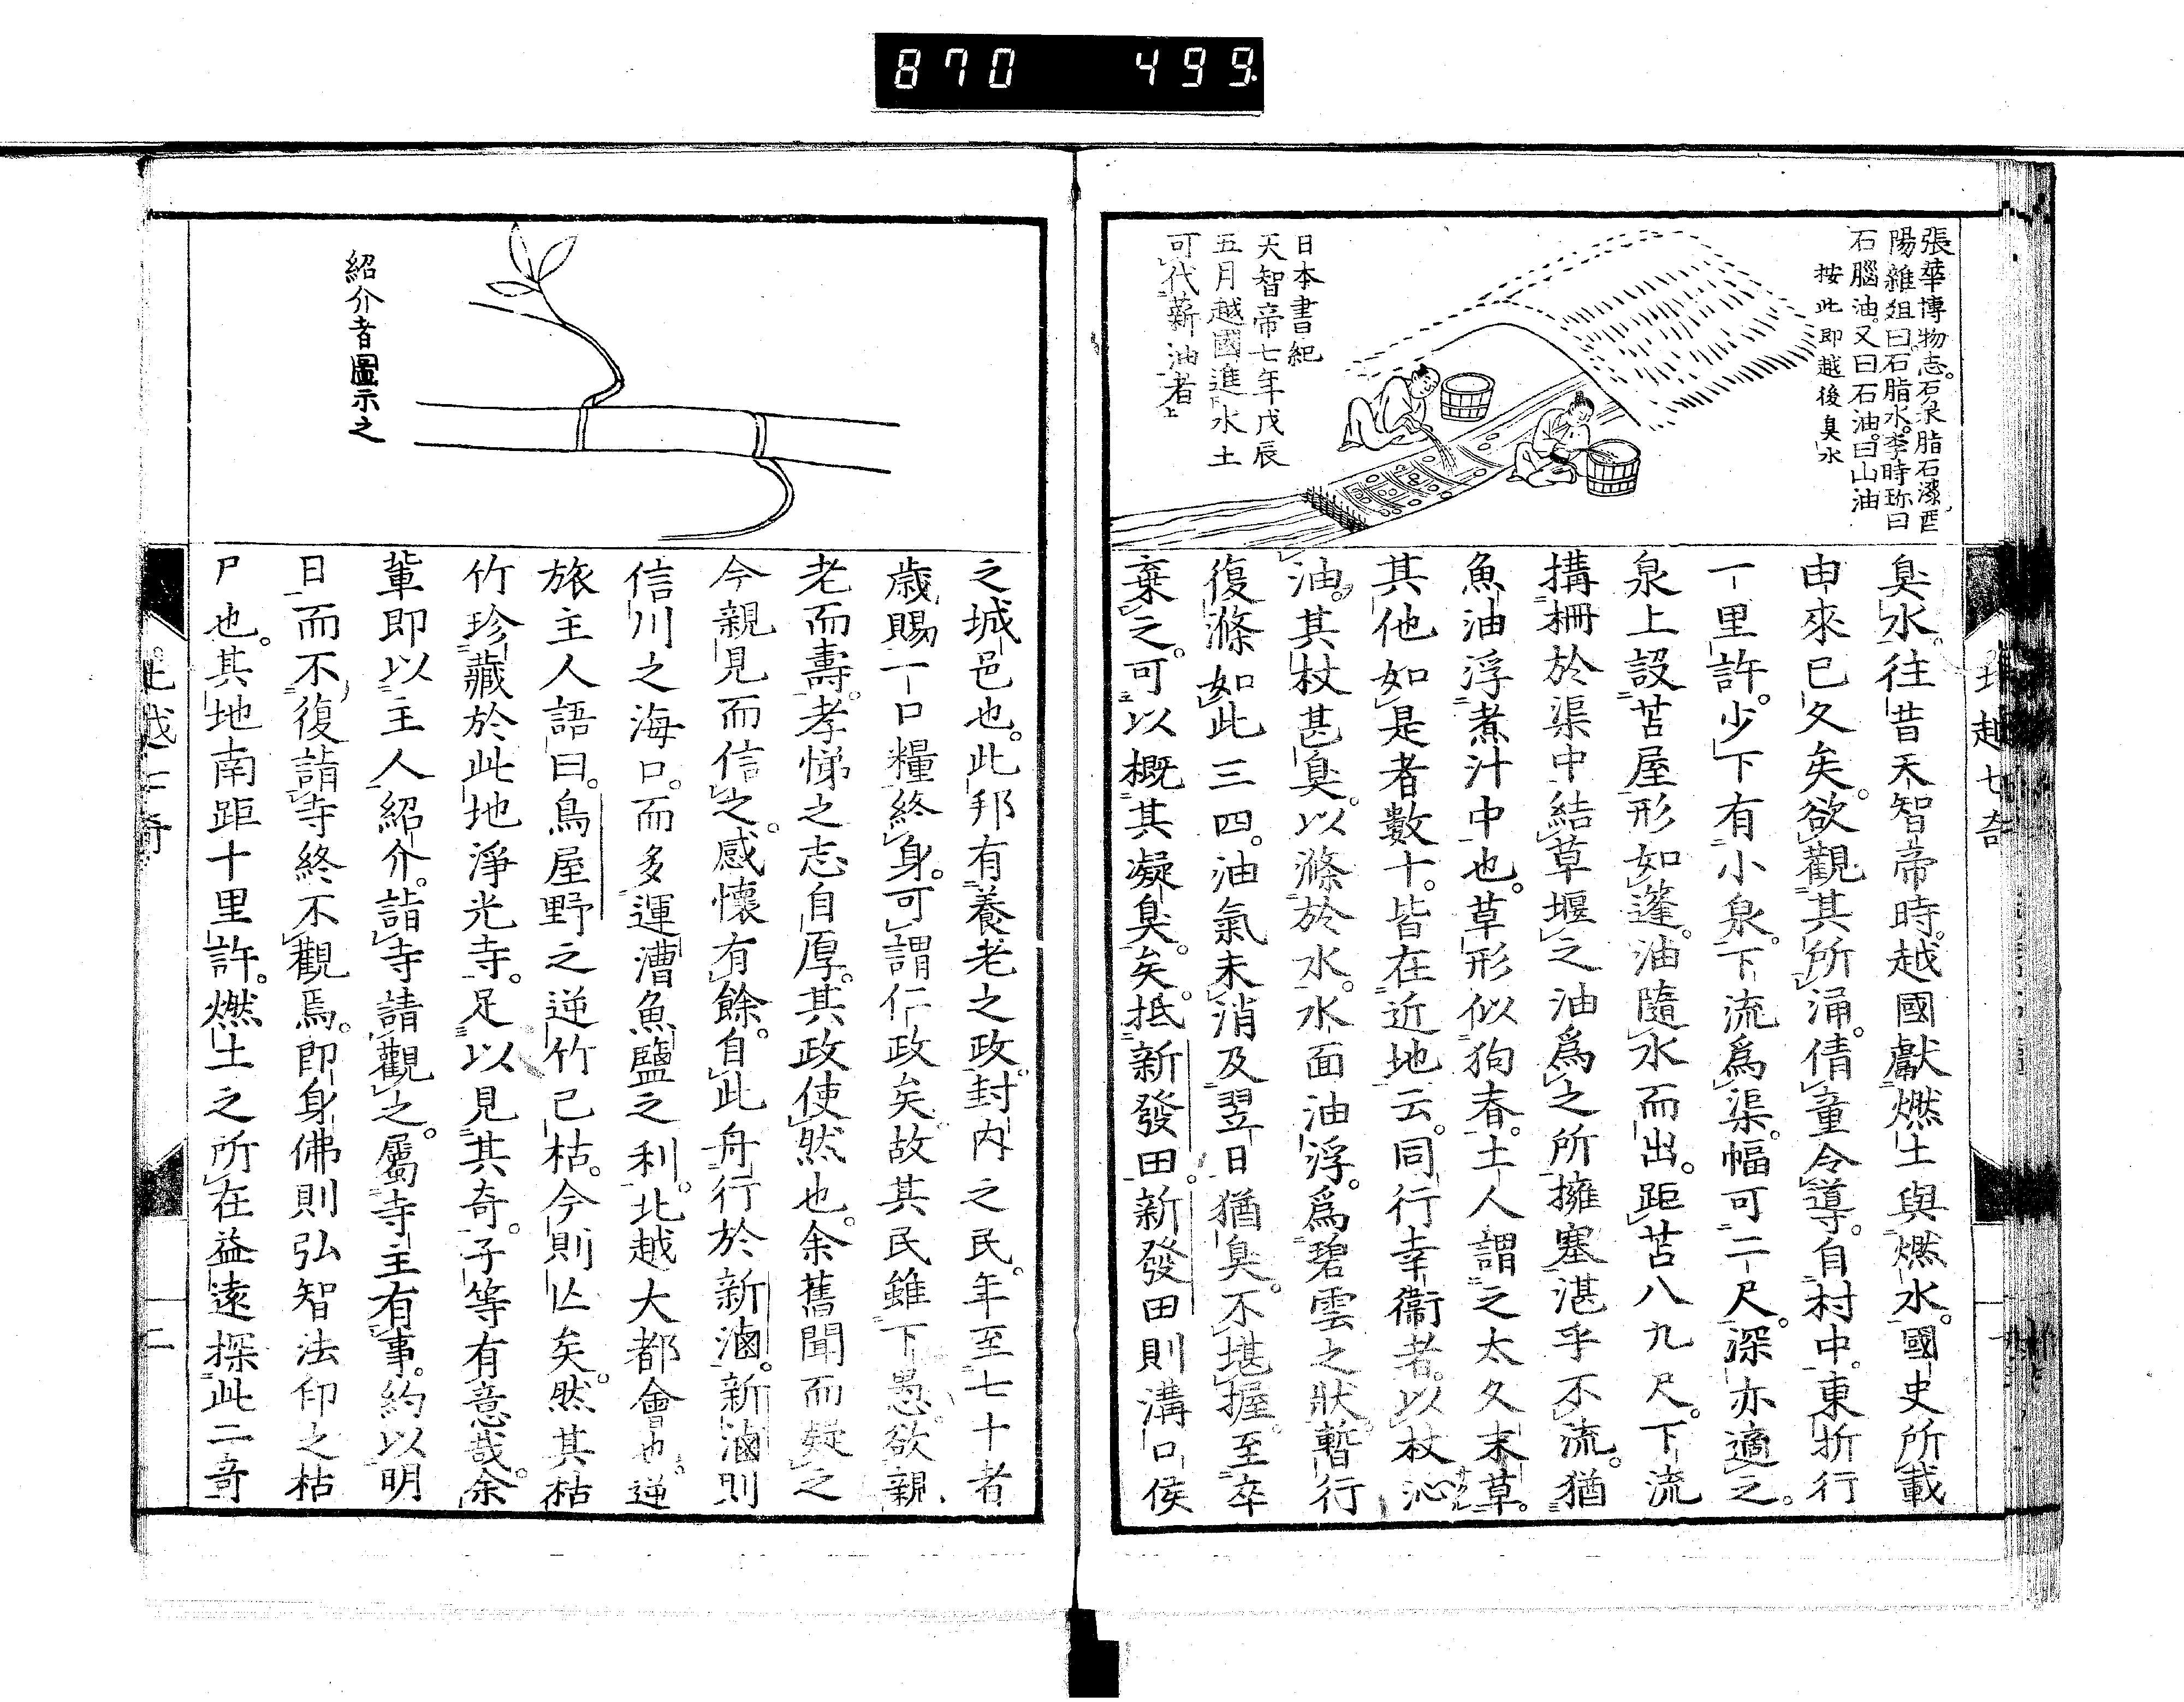 870 499
張華博物志。石泉脂石漆酉
陽雜俎曰石脂水。李時珍曰
石腦油。又曰石油。曰山油
按此即越後臭水
日本書紀
天智帝七年戊辰
五月越國進水土
可代薪油者上
臭水。往昔天智帝時。越國獻燃土與燃水。國史所載
由來已久矣。欲觀其所涌。倩童令導。自村中。東折行
一里許。少下有小泉。下流爲渠。幅可二尺。深亦適之。
泉上設苫屋形如篷。油隨水而出。距苫八九尺。下流
搆柵於渠中結草堰之油爲之所擁塞湛乎不流。猶
魚油浮煮汁中也。草形似狗春。土人謂之太久末草。
其他如是者數十。皆在近地云。同行幸衞者。以杖沁
油。其杖甚臭。以滌於水。水面油浮。爲碧雲之狀。暫行
復滌如此三四。油氣未消及翌日猶臭。不堪握。至卒
棄之。可以概其凝臭矣。抵新發田。新發田則溝口侯
北越七奇
之城邑也。此邦有養老之政。封内之民。年至七十者
歳賜一口糧終身。可謂仁政矣。故其民雖下愚。欲親
老而壽。孝悌之志自厚。其政使然也。余舊聞而疑之
今親見而信之。感懷有餘。自此舟行於新滷。新滷則
信川之海口。而多運漕魚鹽之利。北越大都會也。逆
旅主人語曰。鳥屋野之逆竹已枯。今則亾矣。然其枯
竹珍藏於此地淨光寺。足以見其奇。子等有意哉。余
輩即以主人紹介。詣寺請觀之。屬寺主有事。約以明
日而不復詣寺終不觀焉。即身佛則弘智法印之枯
尸也。其地南距十里許。燃土之所在益遠探此二奇
紹介者圖示之
北越七奇
二